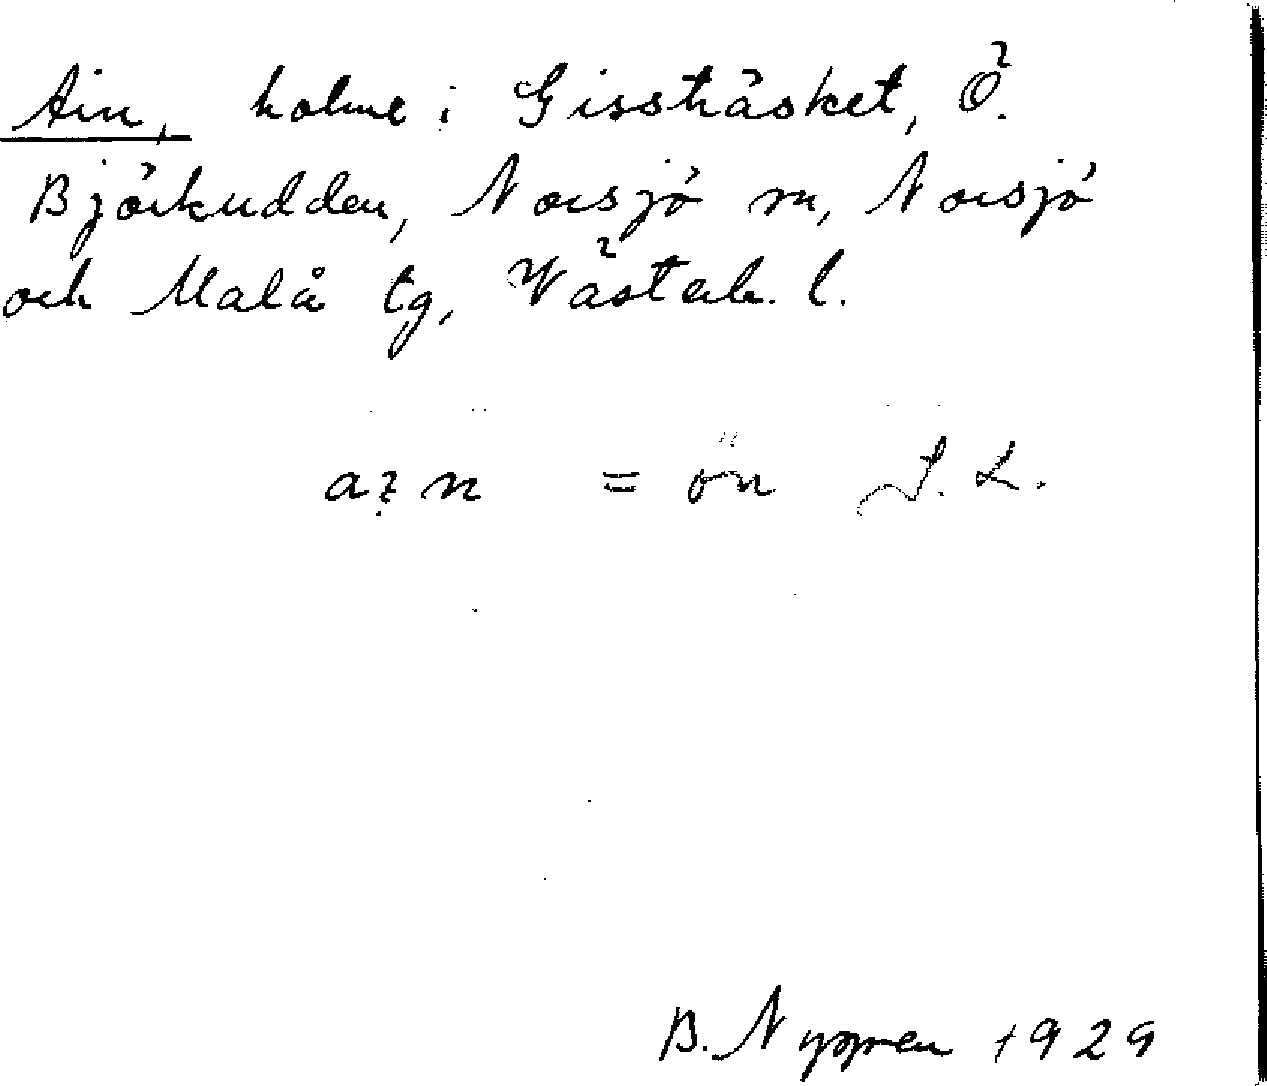 Ain, holme i Gissträsket, Ö.
Björkudden, Norsjö sn, Norsjö
och Malå tg, Västerb. l.
= ön J. L.
B. Nygren 1929